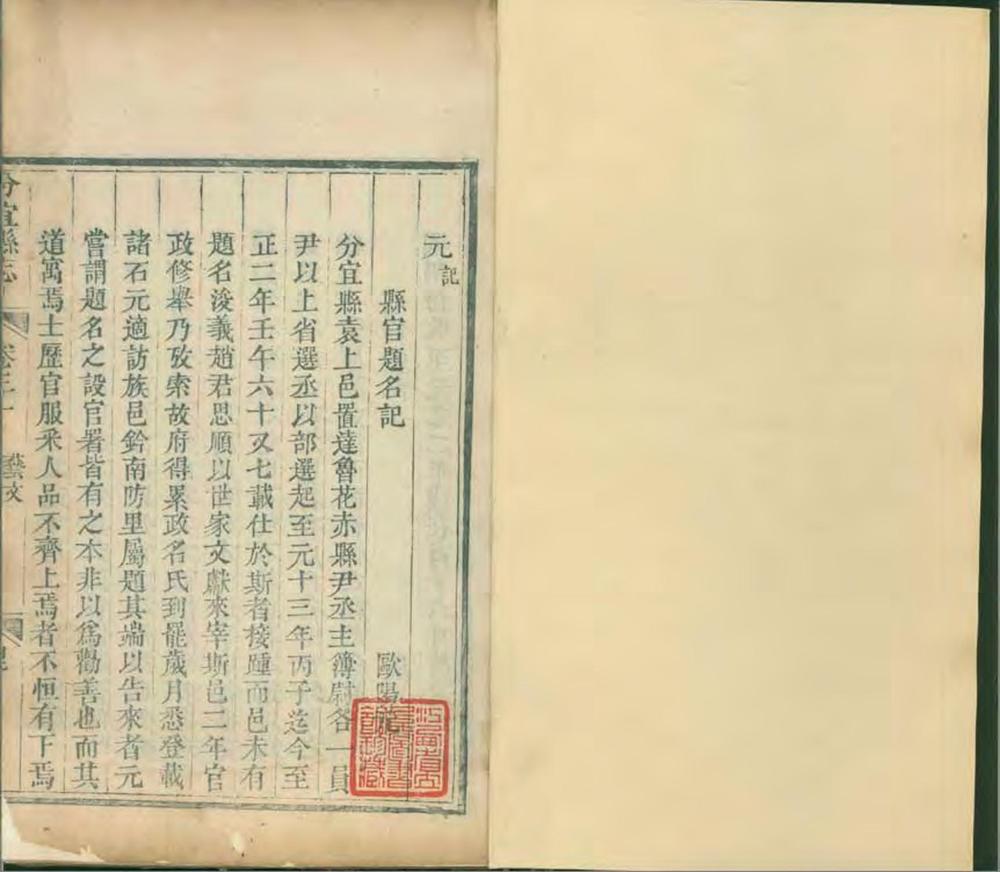 元記
縣官題名記
歐陽
分宜縣袁上邑置達魯花赤縣尹丞主簿尉各一員
尹以上省選丞以部選起至元十三年丙子迄今至
正二年壬午六十又七載仕於斯者接踵而邑未有
題名浚義趙君思順以世家文獻來宰斯邑二年官
政修舉乃攷索故府得累政名氏到罷歲月悉登載
諸石元適訪族邑鈐南防里屬題其端以告來者元
嘗謂題名之設官署皆有之本非以爲勸善也而其
道寓焉士歷官服采人品不齊上焉者不恒有下焉
分宜縣志
卷三十
藝文